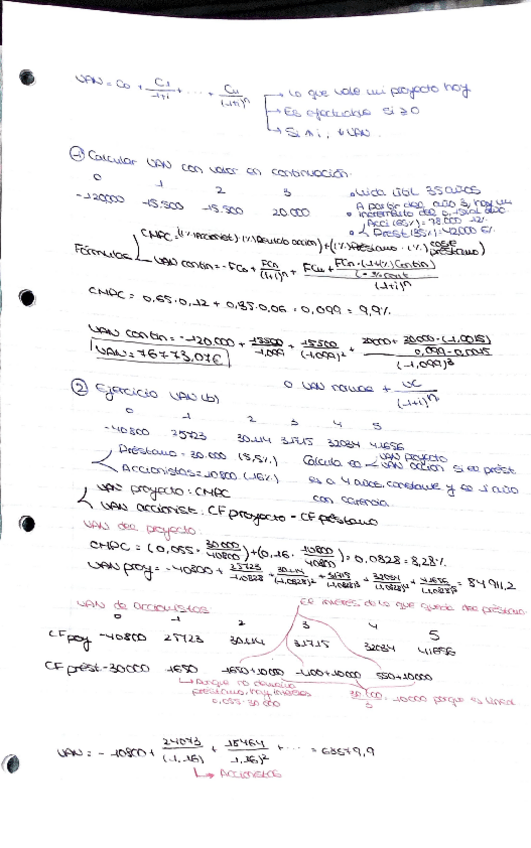 VAN = C0 + C1/1+i + ... + Cn/(1+i)^n → Lo que vale mi proyecto hoy
→ Es efectuable si ≥ 0
→ Si ↑ i, ↓ VAN
① Calcular VAN con valor en continuación.
0 1 2 3
-120000 15.500 15.500 20.000
• Vida útil 35 años
• A partir del año 3, hay un incremento del
Acci (65%) = 78.000 12%
Prest (35%) = 42000 6%
Fórmulas
CMPC = 0,65·0,12 + 0,35·0,06 = 0,099 = 9,9%
VAN contin = -120.000 + 15500/1,099 + 15500/(1,099)² + 20000 + 20.000·(1,0015)/0,099-0,0015/(1,099)³
VAN = 76773,07€
o VAN normal + VC/(1+i)^n
② Ejercicio VAN (b)
0 1 2 3 4 5
-40800 25723 30.114 31.715 32034 41.656
Préstamo = 30.000 (5,5%)
Accionistas = 10800 (16%)
Calcula el VAN proyecto
VAN acción si el prést.
es a 4 años, constante y de 1 año
con carencia.
VAN proyecto: CMPC
VAN accionist: CF proyecto - CF préstamo
VAN del proyecto
CMPC = (0,055 · 30000/40800) + (0,16 · 10800/40800) = 0,0828 = 8,28%
VAN proy = -40800 + 25723/1,0828 + 30.114/(1,0828)² + 31715/(1,0828)³ + 32034/(1,0828)⁴ + 41656/(1,0828)⁵ = 84911,2
El interés de lo que queda del préstamo
VAN de accionistas
0 1 2 3 4 5
CF proy -40800 25723 30.114 31.715 32034 41.656
CF prést -30000 1650 1650+10000 1100+10000 550+10000
préstamo, hay intereses
0,055·30.000
30.000/3 = 10000 porque es lineal
VAN = -10800 + 24073/(1,16) + 18464/1,16² + ... = 63579,9
→ Accionistas